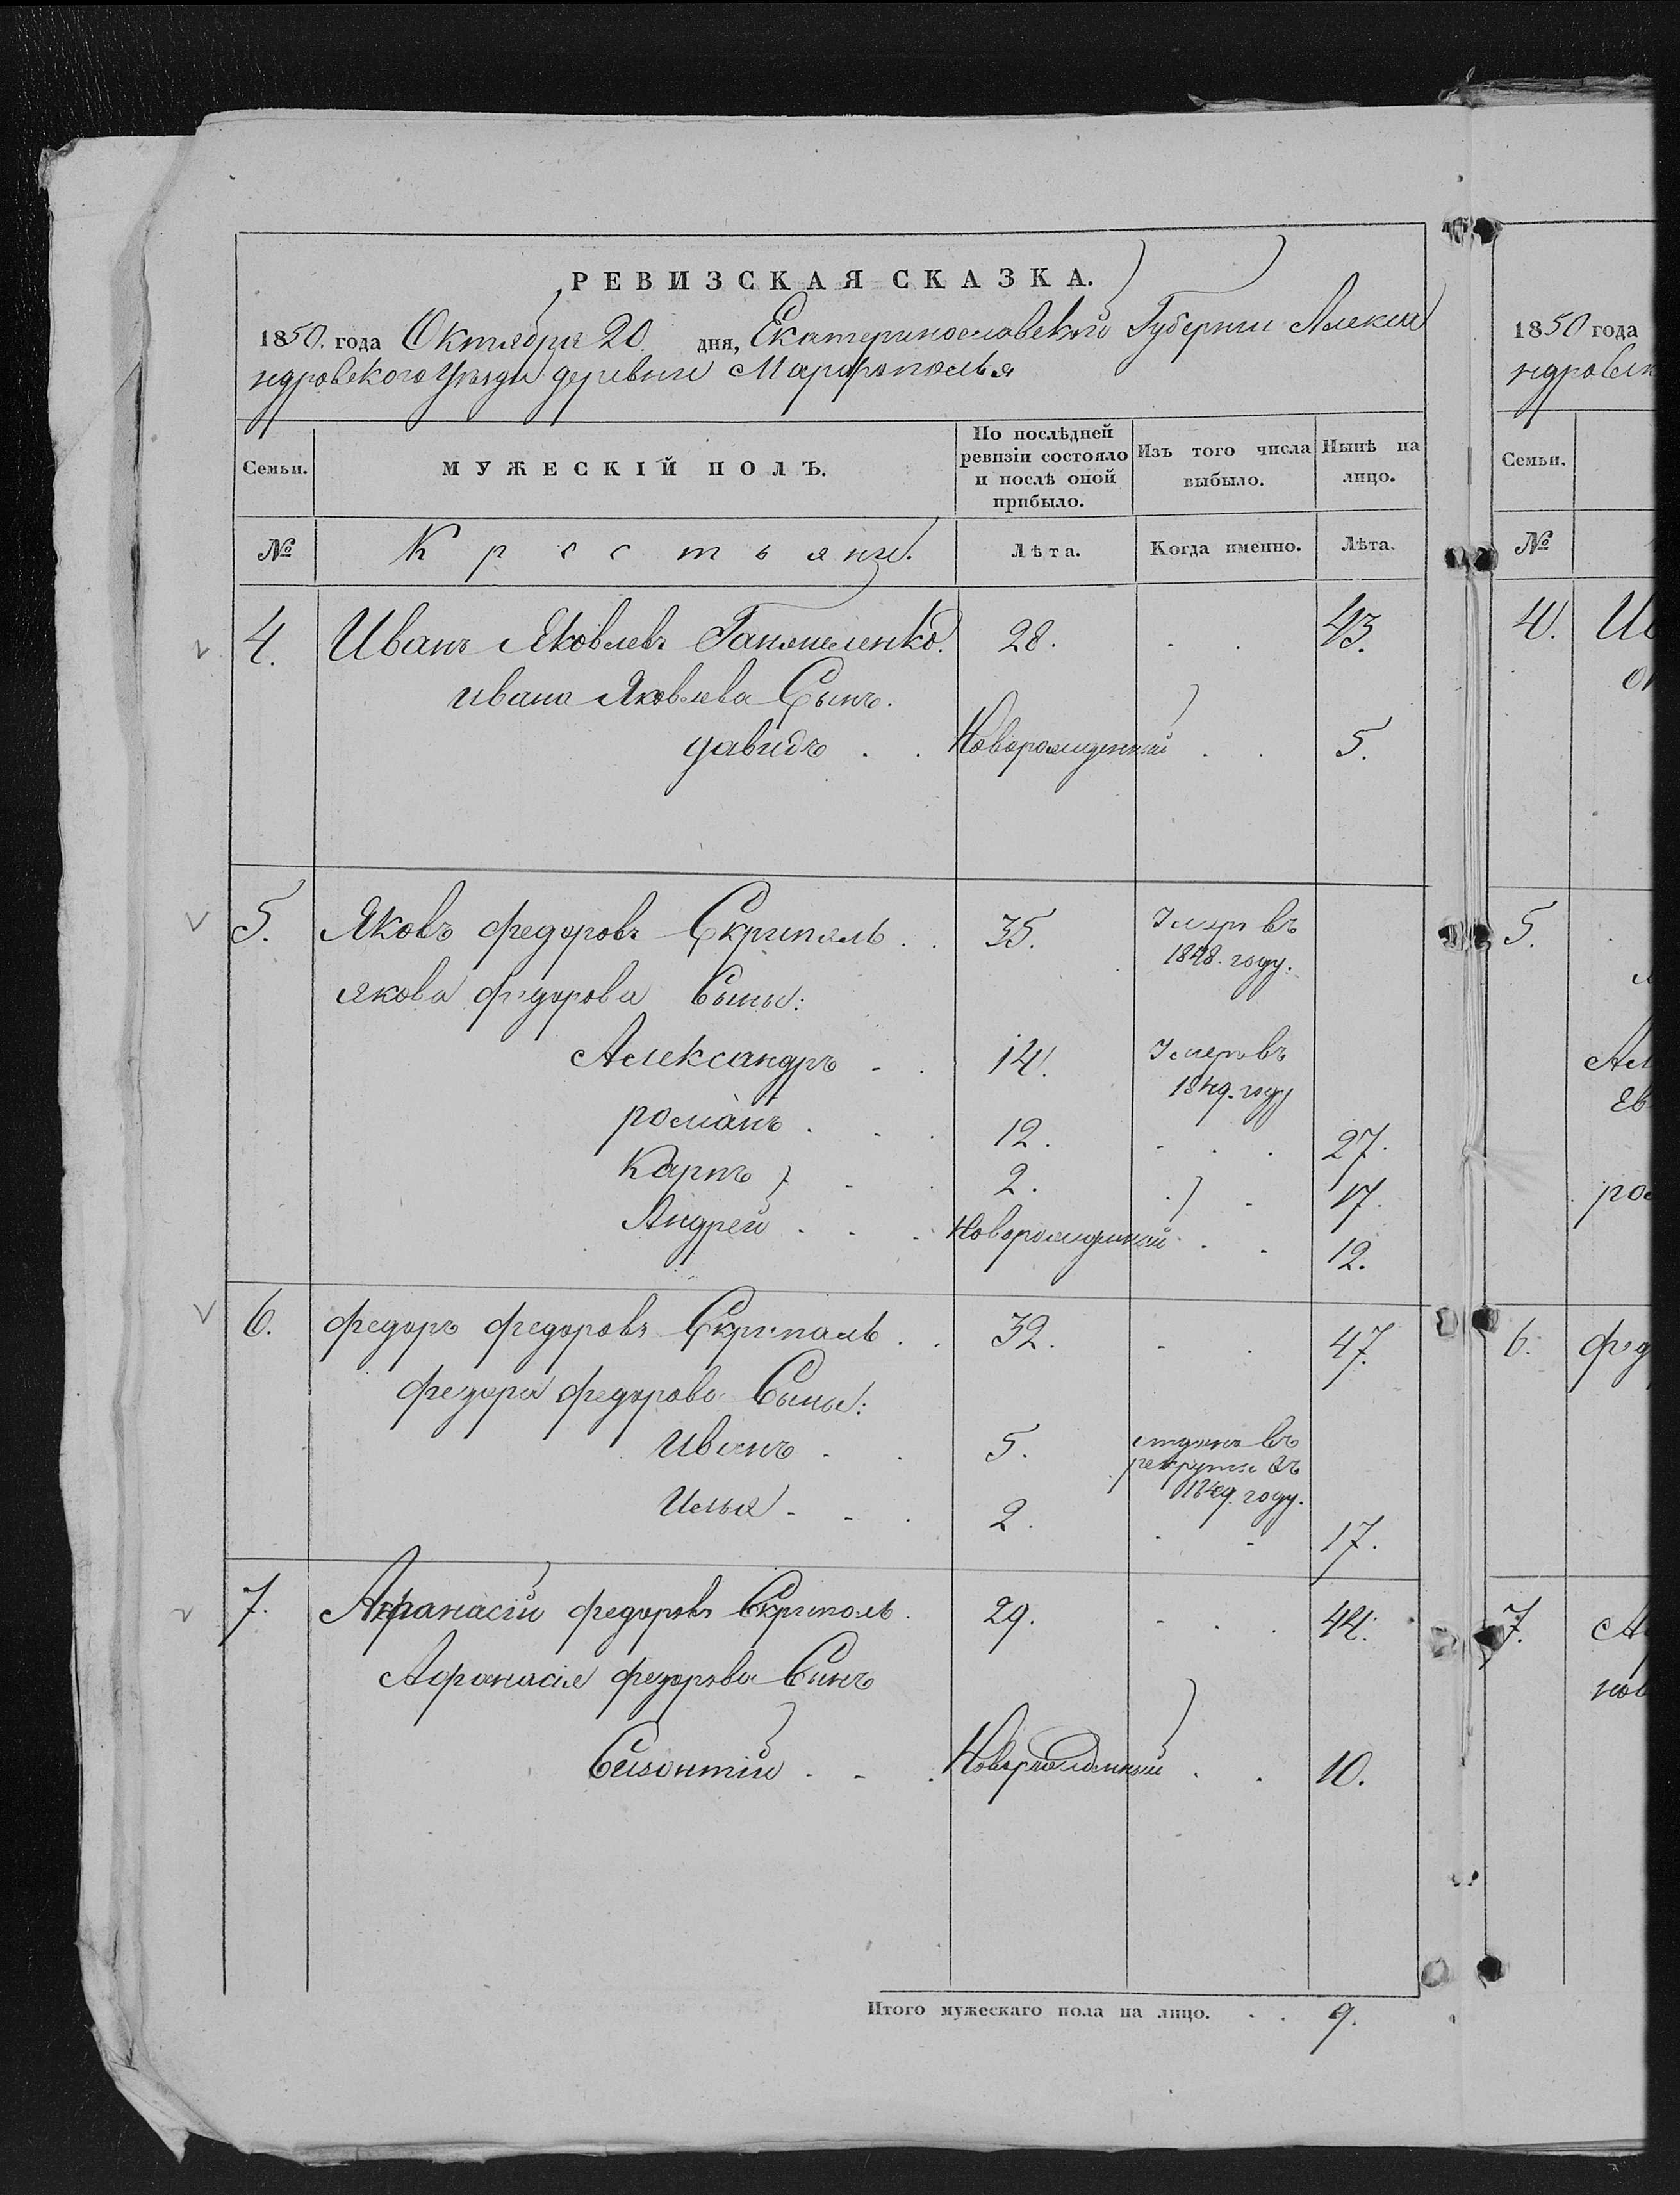 РЕВИЗСКАЯ СКАЗКА.
1850. года Октября 20. дня, Екатеринославской Губернии Алекса
ндровского Уезда деревни Мариополья
Семьи. МУЖЕСКІЙ ПОЛЪ. По послѣдней ревизіи состояло и послѣ оной прибыло. Изъ того числа выбыло. Нынѣ на лицо.
№ Крестьяне. Лѣта. Когда именно. Лѣта.
4. Иванъ Яковлевъ 28. 43.
ивана Яковлева Сынъ.
давидъ Новорожденный 5.
5. Яковъ федоровъ Скрипаль 35. Умеръ въ
1848. году.
якова федорова Сыны:
Александръ 14. Умеръ въ
1849. году
романъ 12. 27.
Карпъ 2. 17.
Андрей Новорожденный 12.
6. федоръ федоровъ Скрипаль 32. 47.
федора федорова Сыны:
иванъ 5. отданъ въ
рекруты въ
1849. году.
Илья 2. 17.
7. Афанасій федоровъ Скрипаль 29. 44.
Афанасія федорова Сынъ
Новорожденный 10.
Итого мужескаго пола на лицо. 9.
1850 года
ндровск
Семьи.
№
4. Ив
5.
Ал
Ев
ро
6. фед
7.